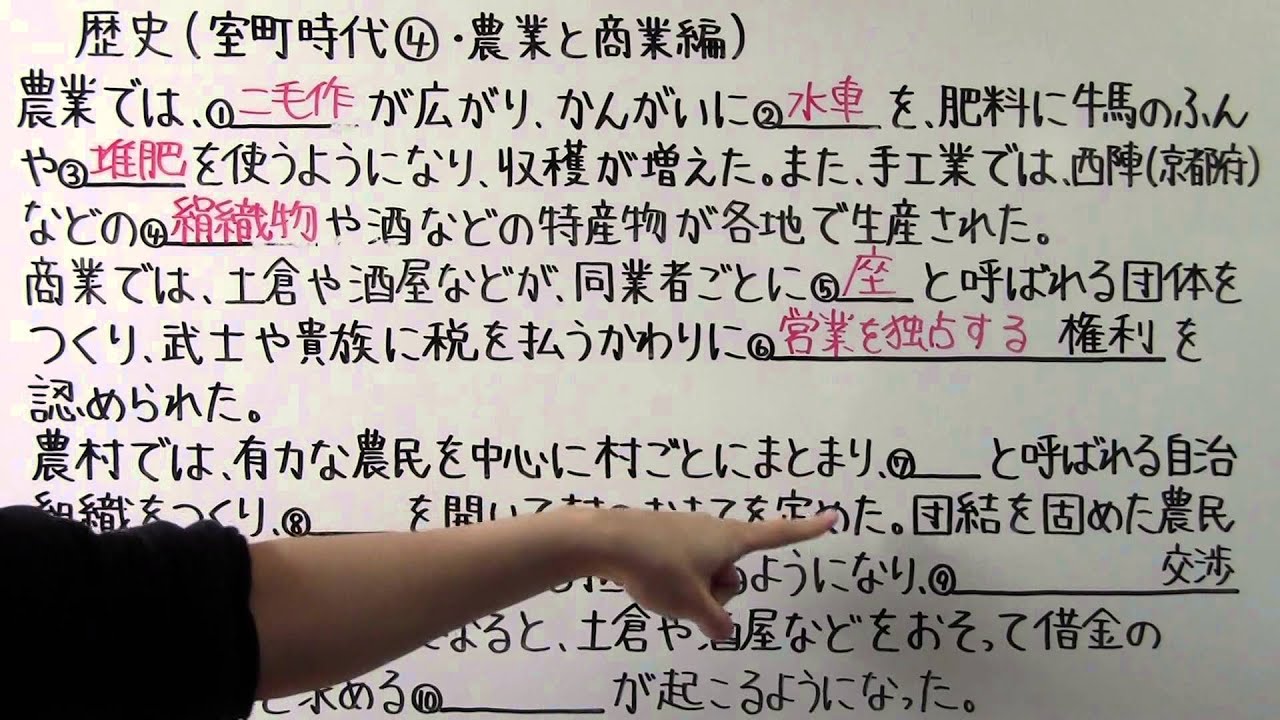 歴史(室町時代④・農業と商業編)
農業では、①二毛作が広がり、かんがいに②水車を、肥料に牛馬のふん
や③堆肥を使うようになり、収穫が増えた。また、手工業では、西陣(京都府)
などの④絹織物や酒などの特産物が各地で生産された。
商業では、土倉や酒屋などが、同業者ごとに⑤座と呼ばれる団体を
つくり、武士や貴族に税を払うかわりに⑥営業を独占する 権利を
認められた。
農村では、有力な農民を中心に村ごとにまとまり、⑦と呼ばれる自治
組織をつくり、⑧を開いて村のおきてを定めた。団結を固めた農民
ようになり、⑨ 交渉
なると、土倉や酒屋などをおそって借金の
求める⑩が起こるようになった。